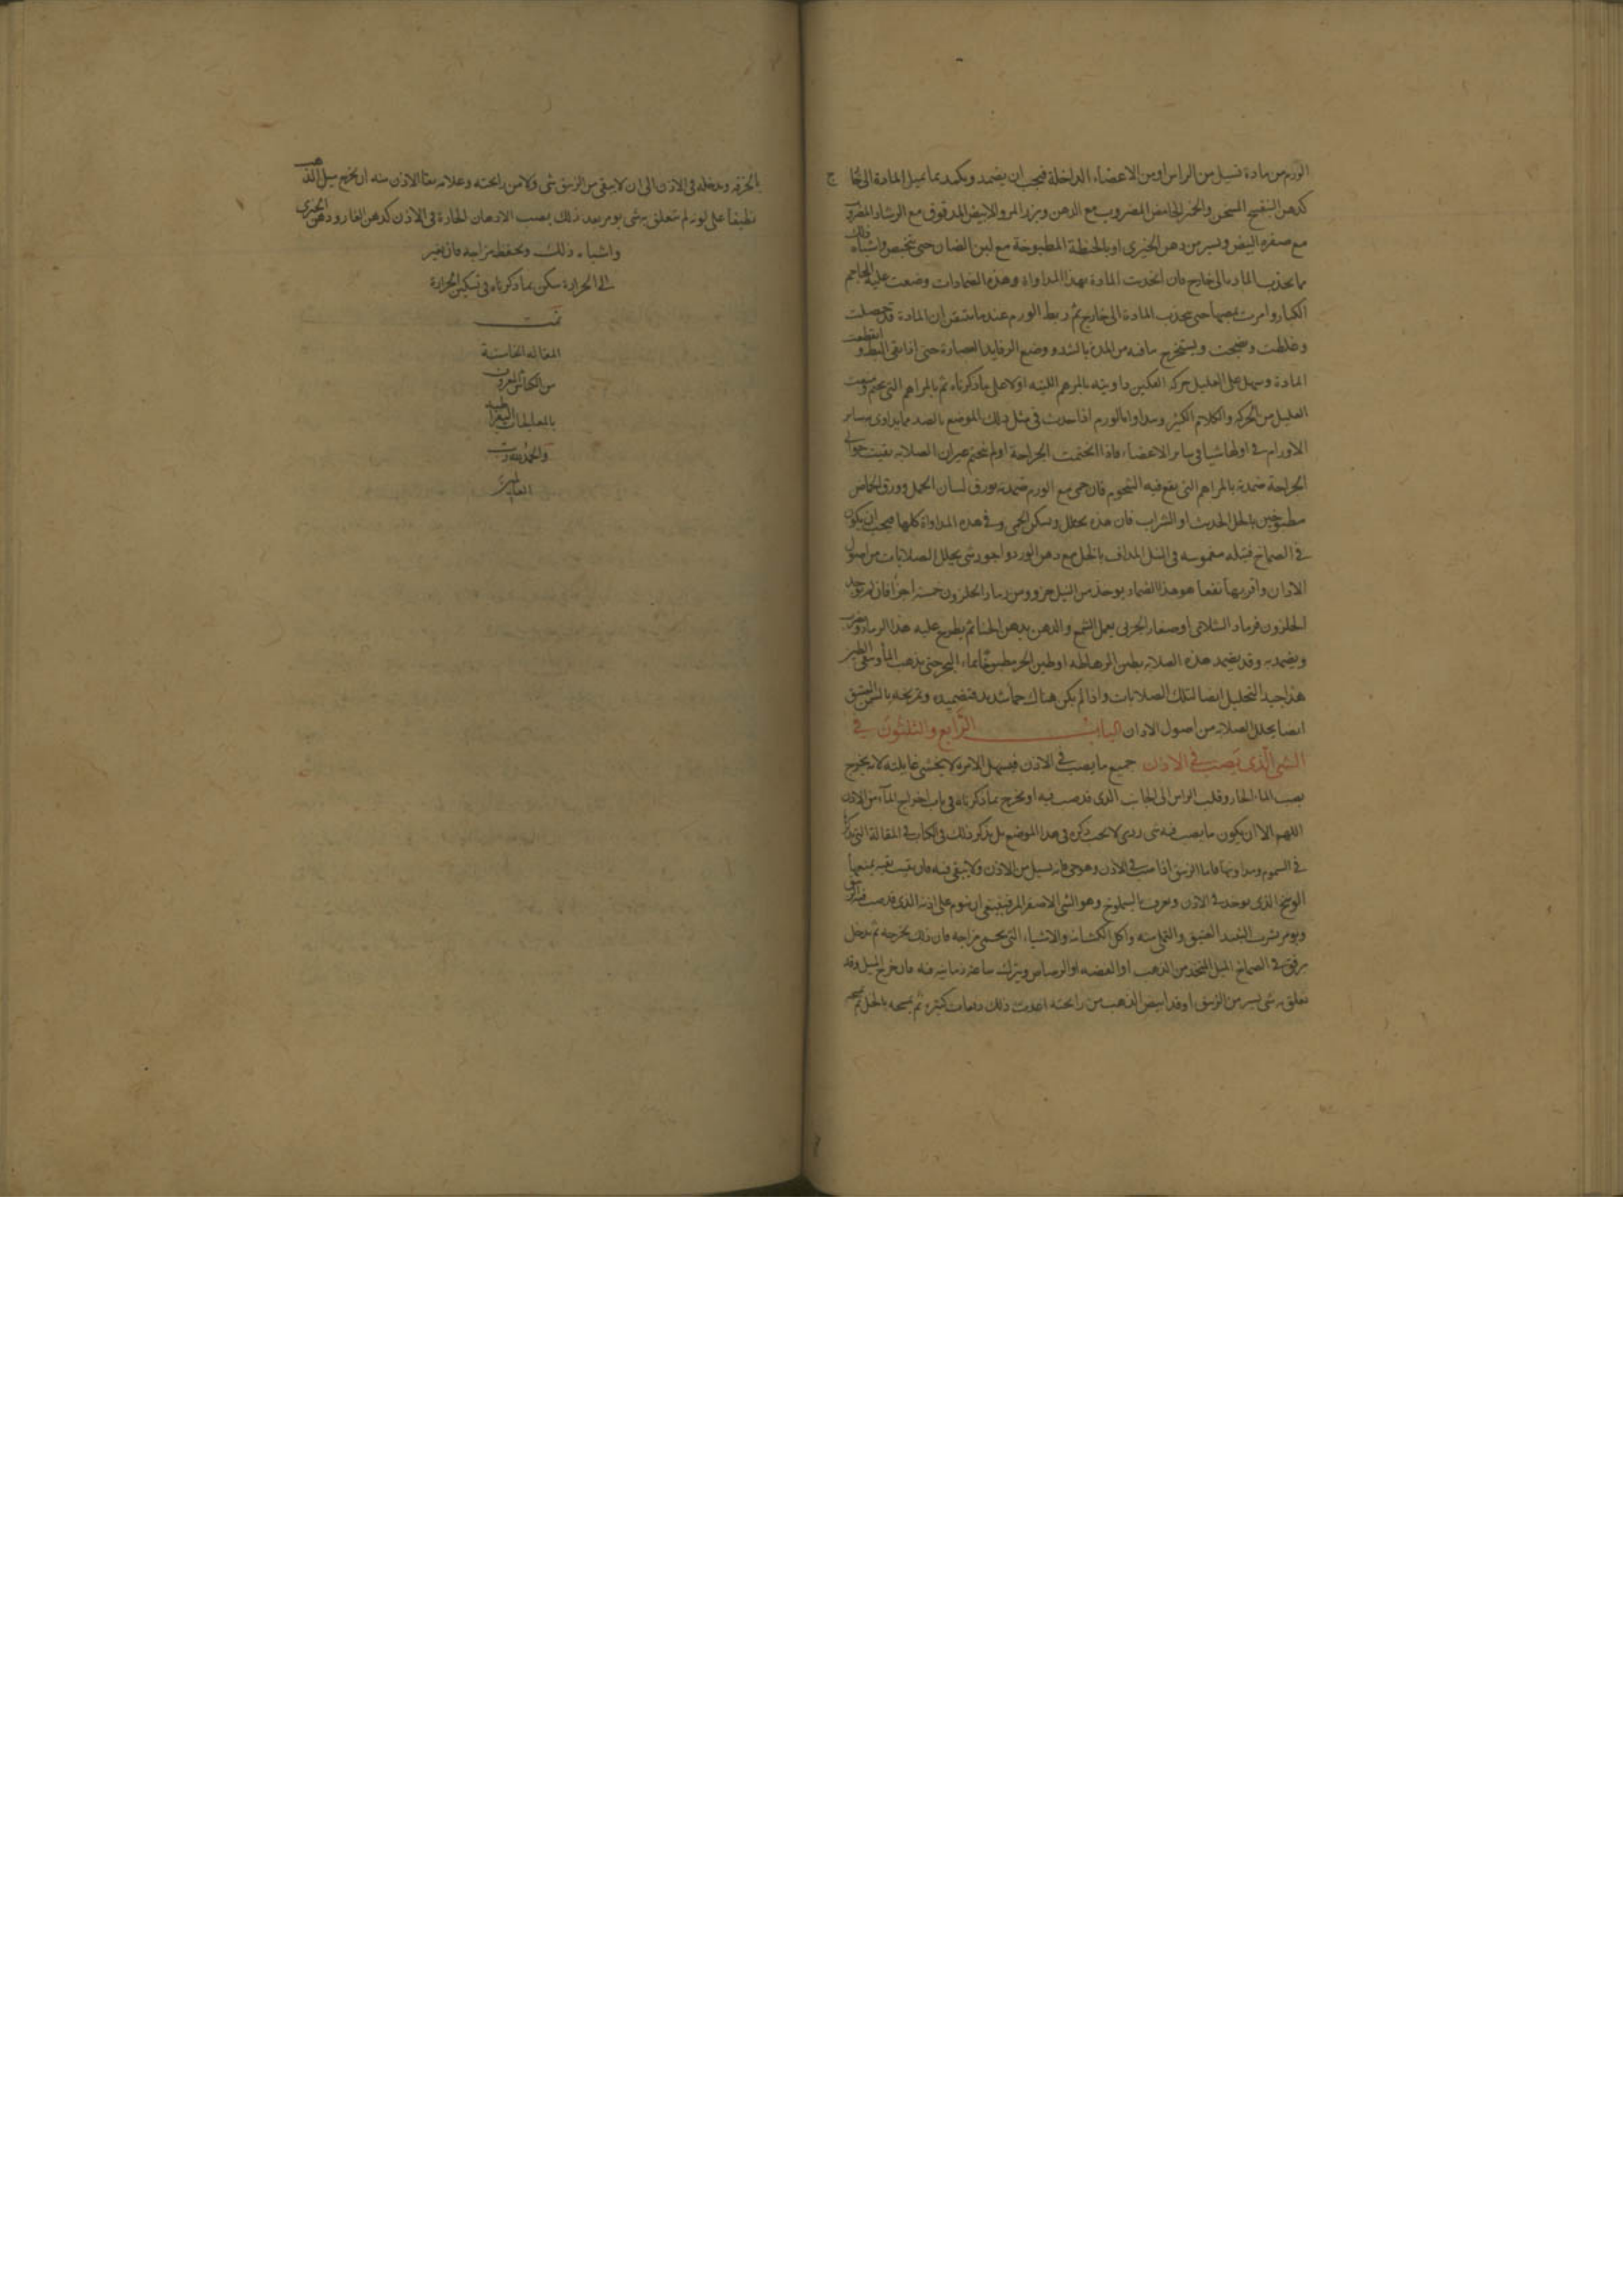 الورم من مادة تسيل من الراس او من الاعضاء الداخلة فيجب ان يضمد ويكمد بما تميل المادة الى
كدهن البنفسج المسخن والخمير الحامض المضروب مع الدهن وبزر المرو الابيض المدقوق مع الرشاد المضروب
مع صفرة البيض ويسير من دهن الخيرى او بالحنطة المطبوخة مع لبن الضان حتى واشباه ذلك
ما يجذب المادة الى خارج فان انجذبت المادة بهذا المداواة وهذه الضمادات وضعت عليه المحاجم
الكبار وامرت بمصها حتى تجذب المادة الى خارج ثم ربط الورم عندما تتيقن ان المادة قد حصلت
وغلظت ونضجت ويستخرج ما فيه من المدة بالشد ووضع الرفايد العصارة حتى اذا نقى البط وانقطعت
المادة وسهل على العليل حركة الفكين داويته بالمرهم اللينة اولا على ما ذكرناه ثم بالمراهم التى تختم ومنعت
العليل من الحركة والكلام الكثير ومداواة الورم اذا حدث فى مثل ذلك الموضع بالضد مما يداوى سائر
الاورام فى اولها شيا فى سائر الاعضاء فاذا انختمت الجراحة او لم تختم غير ان الصلابة بقيت حوالى
الجراحة ضمدته بالمراهم التى يقع فيه الشحوم فان حمى مع الورم ضمدته بورق لسان الحمل وورق الحماض
مطبوخين بالخل الحديث او الشراب فان هذه يحلل ويسكن الحمى وفى هذه المداواة كلها فيجب ان يكون
فى الصماخ فتيلة مغموسة فى المداف بالخل مع دهن الورد واجود شى يحلل الصلابات من اصول
الاذان واقربها نفعا هو هذا الضماد يوخذ من جزو ومن رماد الحلزون خمسة اجزا فان لم يوجد
الحلزون فرماد او صغار يعمل الشمع والدهن بدهن الحنا ثم يطرح عليه هذا الرماد ويضرب
ويضمد به وقد يضمد هذه الصلابة بطين او طين الحر مطبوخا بماء البحر حتى يذهب الما ويبقى الطين
هذا جيد التحليل ايضا لتلك الصلابات واذا لم يكن هناك حما شديد فتضميده وتمريخه بالسمن العتيق
ايضا يحلل الصلابة من اصول الاذان الباب الرابع والثلثون فى
الشى الذى يصب فى الاذان جميع ما يصب فى الاذن فيسهل الامر لا يخشى غايلته لانه يخرج
بصب الماء الحار وقلب الراس الى الجانب الذى قد صب فيه او يخرج بما ذكرناه فى باب اخراج الماء من الاذن
اللهم الا ان يكون ما يصب فيه شى ردى لا يجب ذكره فى هذا الموضع بل يذكر ذلك فى الكتاب فى المقالة التى نذكر
فى السموم ومداوتها فاما الزيبق اذا صب فى الاذن وهو حى فانه يسيل من الاذن ولا يبقى فيه فان بقيت بقية يمنعها
الوسخ الذى يوجد فى الاذن ويعرف بالسملوخ وهو الشى الاصفر المر فينبغى ان ينوم على اذنه الذى قد صب فيه الزيبق
ويومر بشرب النبيذ العتيق والتملى منه واكل والاشياء التى يحمى مزاجه فان ذلك يخرجه ثم يدخل
برفق فى الصماخ الميل المتخذ من الذهب او الفضة او الرصاص ويترك ساعة زمانية فيه فان خرج الميل وقد
تعلق به شى يسير من الزيبق او قد ابيض الذهب من رايحته اعدت ذلك دفعات كثيرة ثم يمسحه بالخل ثم يمسحه
بالخرقه ويدخله فى الاذن الى ان لا يبقى من الزيبق شى ولا من رايحته وعلامة نقا الاذن منه ان يخرج ميل الذهب
نظيفا على لونه لم تتعلق به شى يومر بعد ذلك بصب الادهان الحارة فى الاذن كدهن الغار ودهن الخيرى
واشباه ذلك ويحفظ مزاجه فان تغير
الى الحرارة سكن بما ذكرناه فى تسكين الحرارة
تمت
المقالة الخامسة
من الكناش المعروف
بالمعالجات البقراطية
والحمد لله رب
العالمين